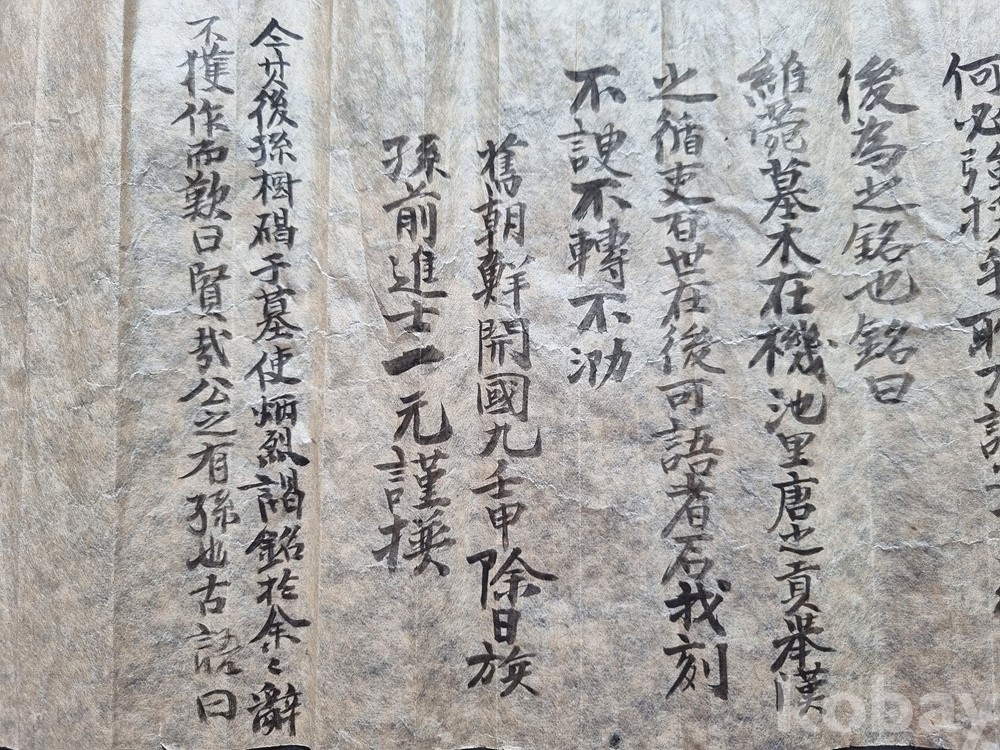 何必強求乎取
後為之銘也銘曰
維甍墓木在機池里唐之貢舉漢
之循吏百世在後可語者石我刻
不諛不轉不泐
舊朝鮮開國九壬申除日族
孫前進士一元謹撰
今其後孫樹碣于墓使炳烈謁銘於余〻辭
不獲作而歎曰賢哉公之有孫也古語曰
kobay